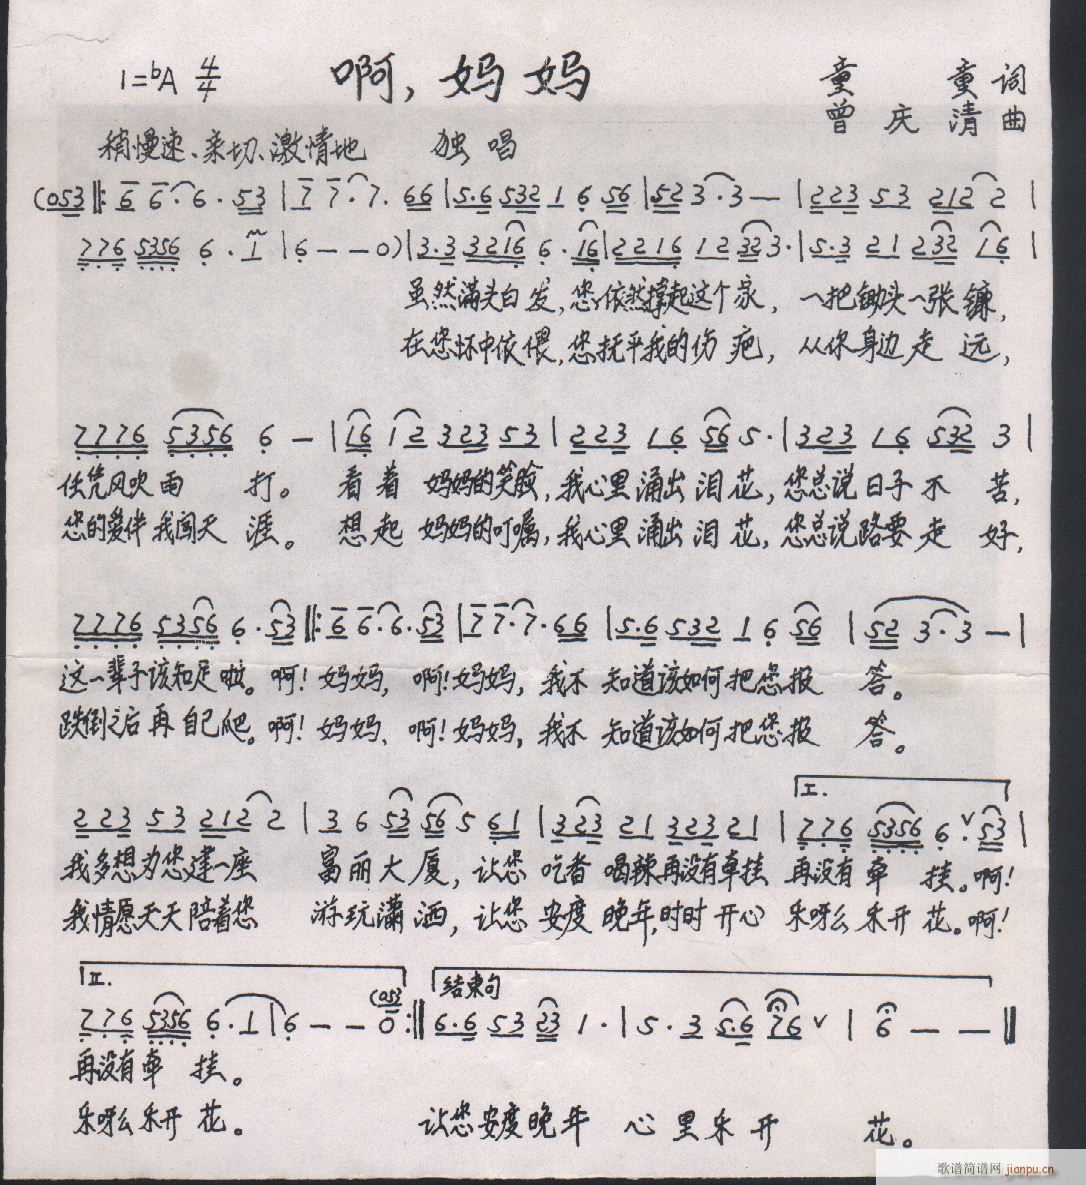 1=ᵇA 4/4 啊，妈妈 童童 词
曾庆清 曲
稍慢速、亲切、激情地 独唱
(053 ‖: 6 6·6·53 | 7 7·7·66 | 5·6 532 1 6 56 | 52 3·3 — | 223 53 212 2 |
776 5356 6·1 | 6 — — 0) | 3·3 3216 6·16 | 2216 12 323· | 5·3 21 232 16 |
虽然满头白发，您依然撑起这个家，一把锄头一张镰，
在您怀中依偎，您抚平我的伤疤，从你身边走远，
7776 5356 6 — | 16 12 323 53 | 223 16 56 5· | 323 16 532 3 |
任凭风吹雨打。看着妈妈的笑脸，我心里涌出泪花，您总说日子不苦，
您的爱伴我闯天涯。想起妈妈的叮嘱，我心里涌出泪花，您总说路要走好，
7776 5356 6·53 ‖: 6 6·6·53 | 7 7·7·66 | 5·6 532 1 6 56 | 52 3·3 — |
这一辈子该知足啦。啊！妈妈，啊！妈妈，我不知道该如何把您报答。
跌倒之后再自己爬。啊！妈妈、啊！妈妈，我不知道该如何把您报答。
I.
223 53 212 2 | 3 6 53 56 5 61 | 323 21 323 21 | 776 5356 6·ᵛ53 |
我多想为您建一座富丽大厦，让您吃香喝辣再没有牵挂再没有牵挂。啊！
我情愿天天陪着您游玩潇洒，让您安度晚年，时时开心乐呀么乐开花。啊！
II. (053 结束句
776 5356 6·1 | 6 — — 0 :‖ 6·6 53 23 1· | 5·3 5·6 76 ᵛ | 6 — — ‖
再没有牵挂。
乐呀么乐开花。 让您安度晚年 心里乐开花。
歌谱简谱网 jianpu.cn